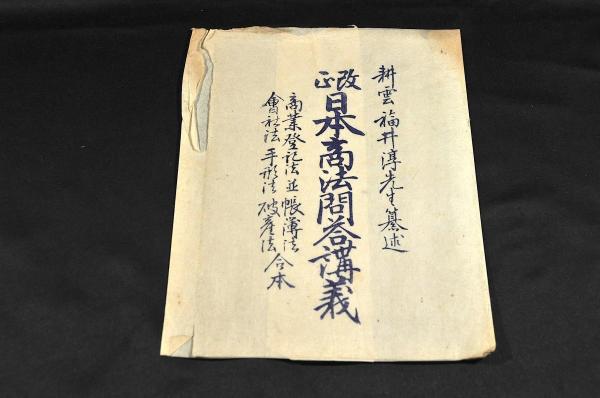 耕雲 福井淳先生纂述
改正
日本商法問答講義
商業登記法並帳簿法
會社法 手形法 破産法 合本